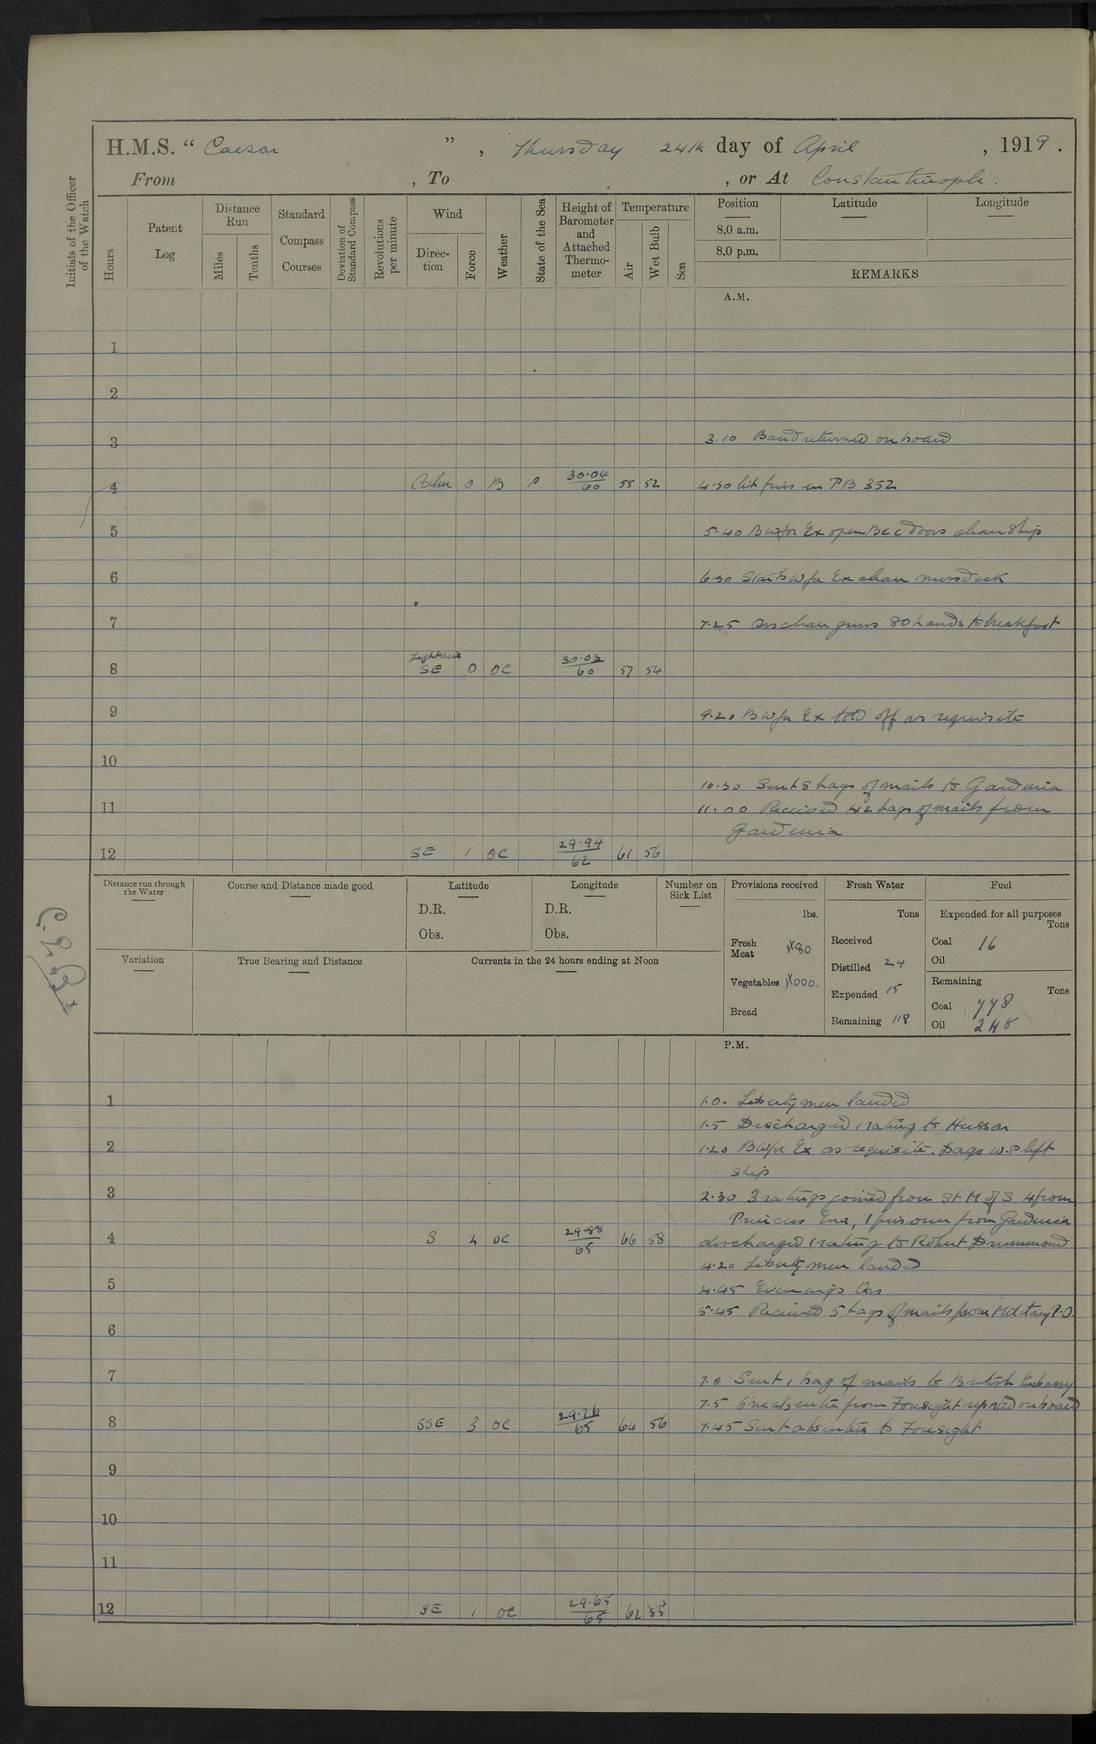 H.M.S. “ Caesar ” , Thursday 24th day of April , 1919 .
From , To , or At Constantinople.
Initials of the Officer of the Watch
Hours
Patent Log
Distance Run
Miles
Tenths
Standard Compass Courses
Deviation of Standard Compass
Revolutions per minute
Wind
Direction
Force
Weather
State of the Sea
Height of Barometer and Attached Thermometer
Temperature
Air
Wet Bulb
Sea
Position Latitude Longitude
8.0 a.m.
8.0 p.m.
REMARKS
A.M.
1
2
3 3.10 Band returned on board
4 Calm 0 B 30.04 60 55 52 4.30 lit fires in PB 352
5 5.40 Ex open B & C doors clean ship
6 6.30 Ex clean mess deck
7 7.25 clean guns 8.0 hands to breakfast
8 Light airs SE 0 OC 30.03 60 57 54
9 9.20 Ex told off as requisite
10
10.30 Sent 8 bags of mails to Gardenia
11 11.00 Received 42 bags of mails from
Gardenia
12 SE 1 OC 29.94 62 61 56
Distance run through the Water
Course and Distance made good
Latitude
D.R.
Obs.
Longitude
D.R.
Obs.
Number on Sick List
Provisions received
lbs.
Fresh Meat 80
Vegetables 000.
Bread
Fresh Water
Tons
Received
Distilled 24
Expended 15
Remaining 118
Fuel
Expended for all purposes
Tons
Coal 16
Oil
Remaining
Tons
Coal 778
Oil 248
Variation
True Bearing and Distance
Currents in the 24 hours ending at Noon
P.M.
1 1.0. Liberty men landed
1.5 Discharged 1 rating to Hussar
2 1.20 Ex as requisite. left
ship
3 2.30 3 ratings joined from St M of S 4 from
Princess Ena, 1 prisoner from Gardenia
4 S 2 OC 29.88 65 66 58 discharged 1 rating to Robert Drummond
4.20 Liberty men landed
5 4.45 Evening Qrs
5.45 Received 5 bags of mails from Military P.O.
6
7 7.0 Sent 1 bag of mails to British Embassy
7.5 absentee from Foresight reported on board
8 SSE 3 OC 29.76 65 64 56 7.45 Sent absentee to Foresight
9
10
11
12 SE 1 OC 29.65 65 62 55